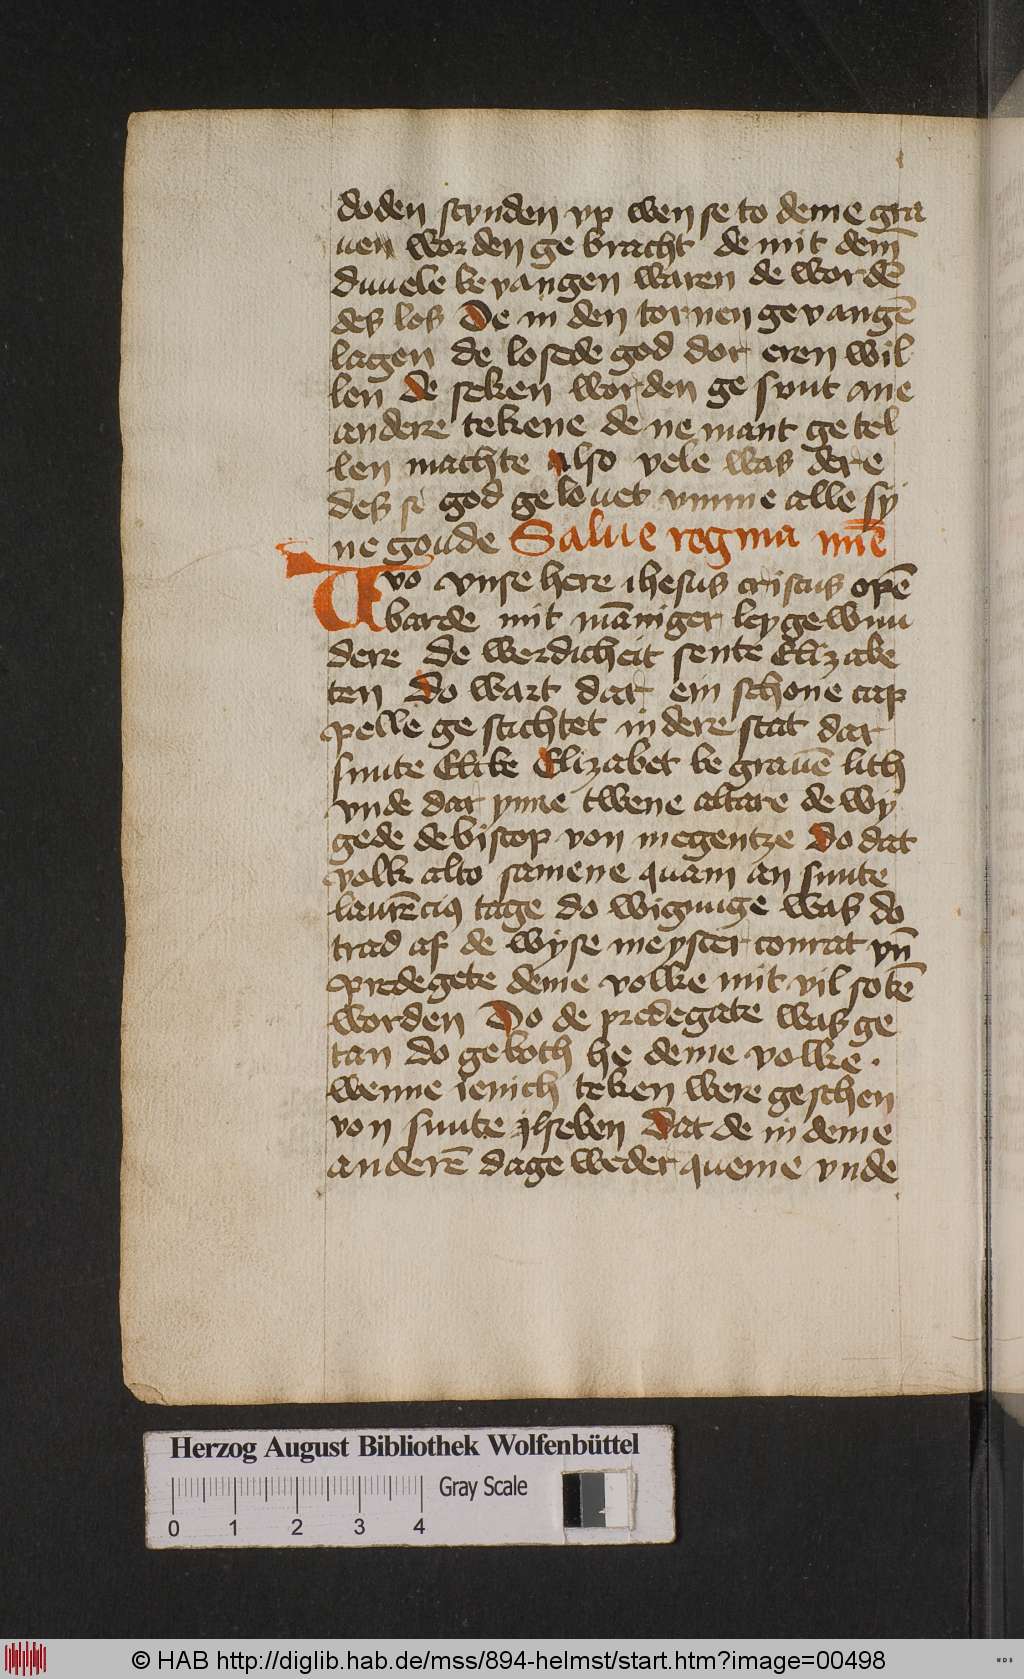 doden stunden vp wen se to deme gra
uen worden ge bracht de mit dem̄
duuele be vangen waren de wordē
des los De in den tornen ge vangē
lagen de losede god dor eren wil
len de seken worden ge sunt ane
andere tekene de ne mant ge tel
len machte also vele was dere
des si god ge louet vmme alle sy
ne goude Salue regina
Wo vnse here ihesus cristus opē
barde mit mā̄niger ley ge wun
dere de werdicheit sente Elizabe
ten do wart dar ein schone cap
pelle ge stichtet in dere stat dar
sunte Elizabet be grauē lith
vnde dar ynne twene altare de wy
gede de biscop von megentze do dat
volk alto samene quam an sunte
laurēcius tage do wigunge was do
trad af de wyse meyster conrat vn̄
predegete deme volke mit vil sotē
worden Do de predegate was ge
tan do geboth he deme volke .
wenne ienich teken were geschen
von sunte ilseben dat de in deme
anderē dage weder queme vnde
Herzog August Bibliothek Wolfenbüttel
Gray Scale
0 1 2 3 4
© HAB http://diglib.hab.de/mss/894-helmst/start.htm?image=00498